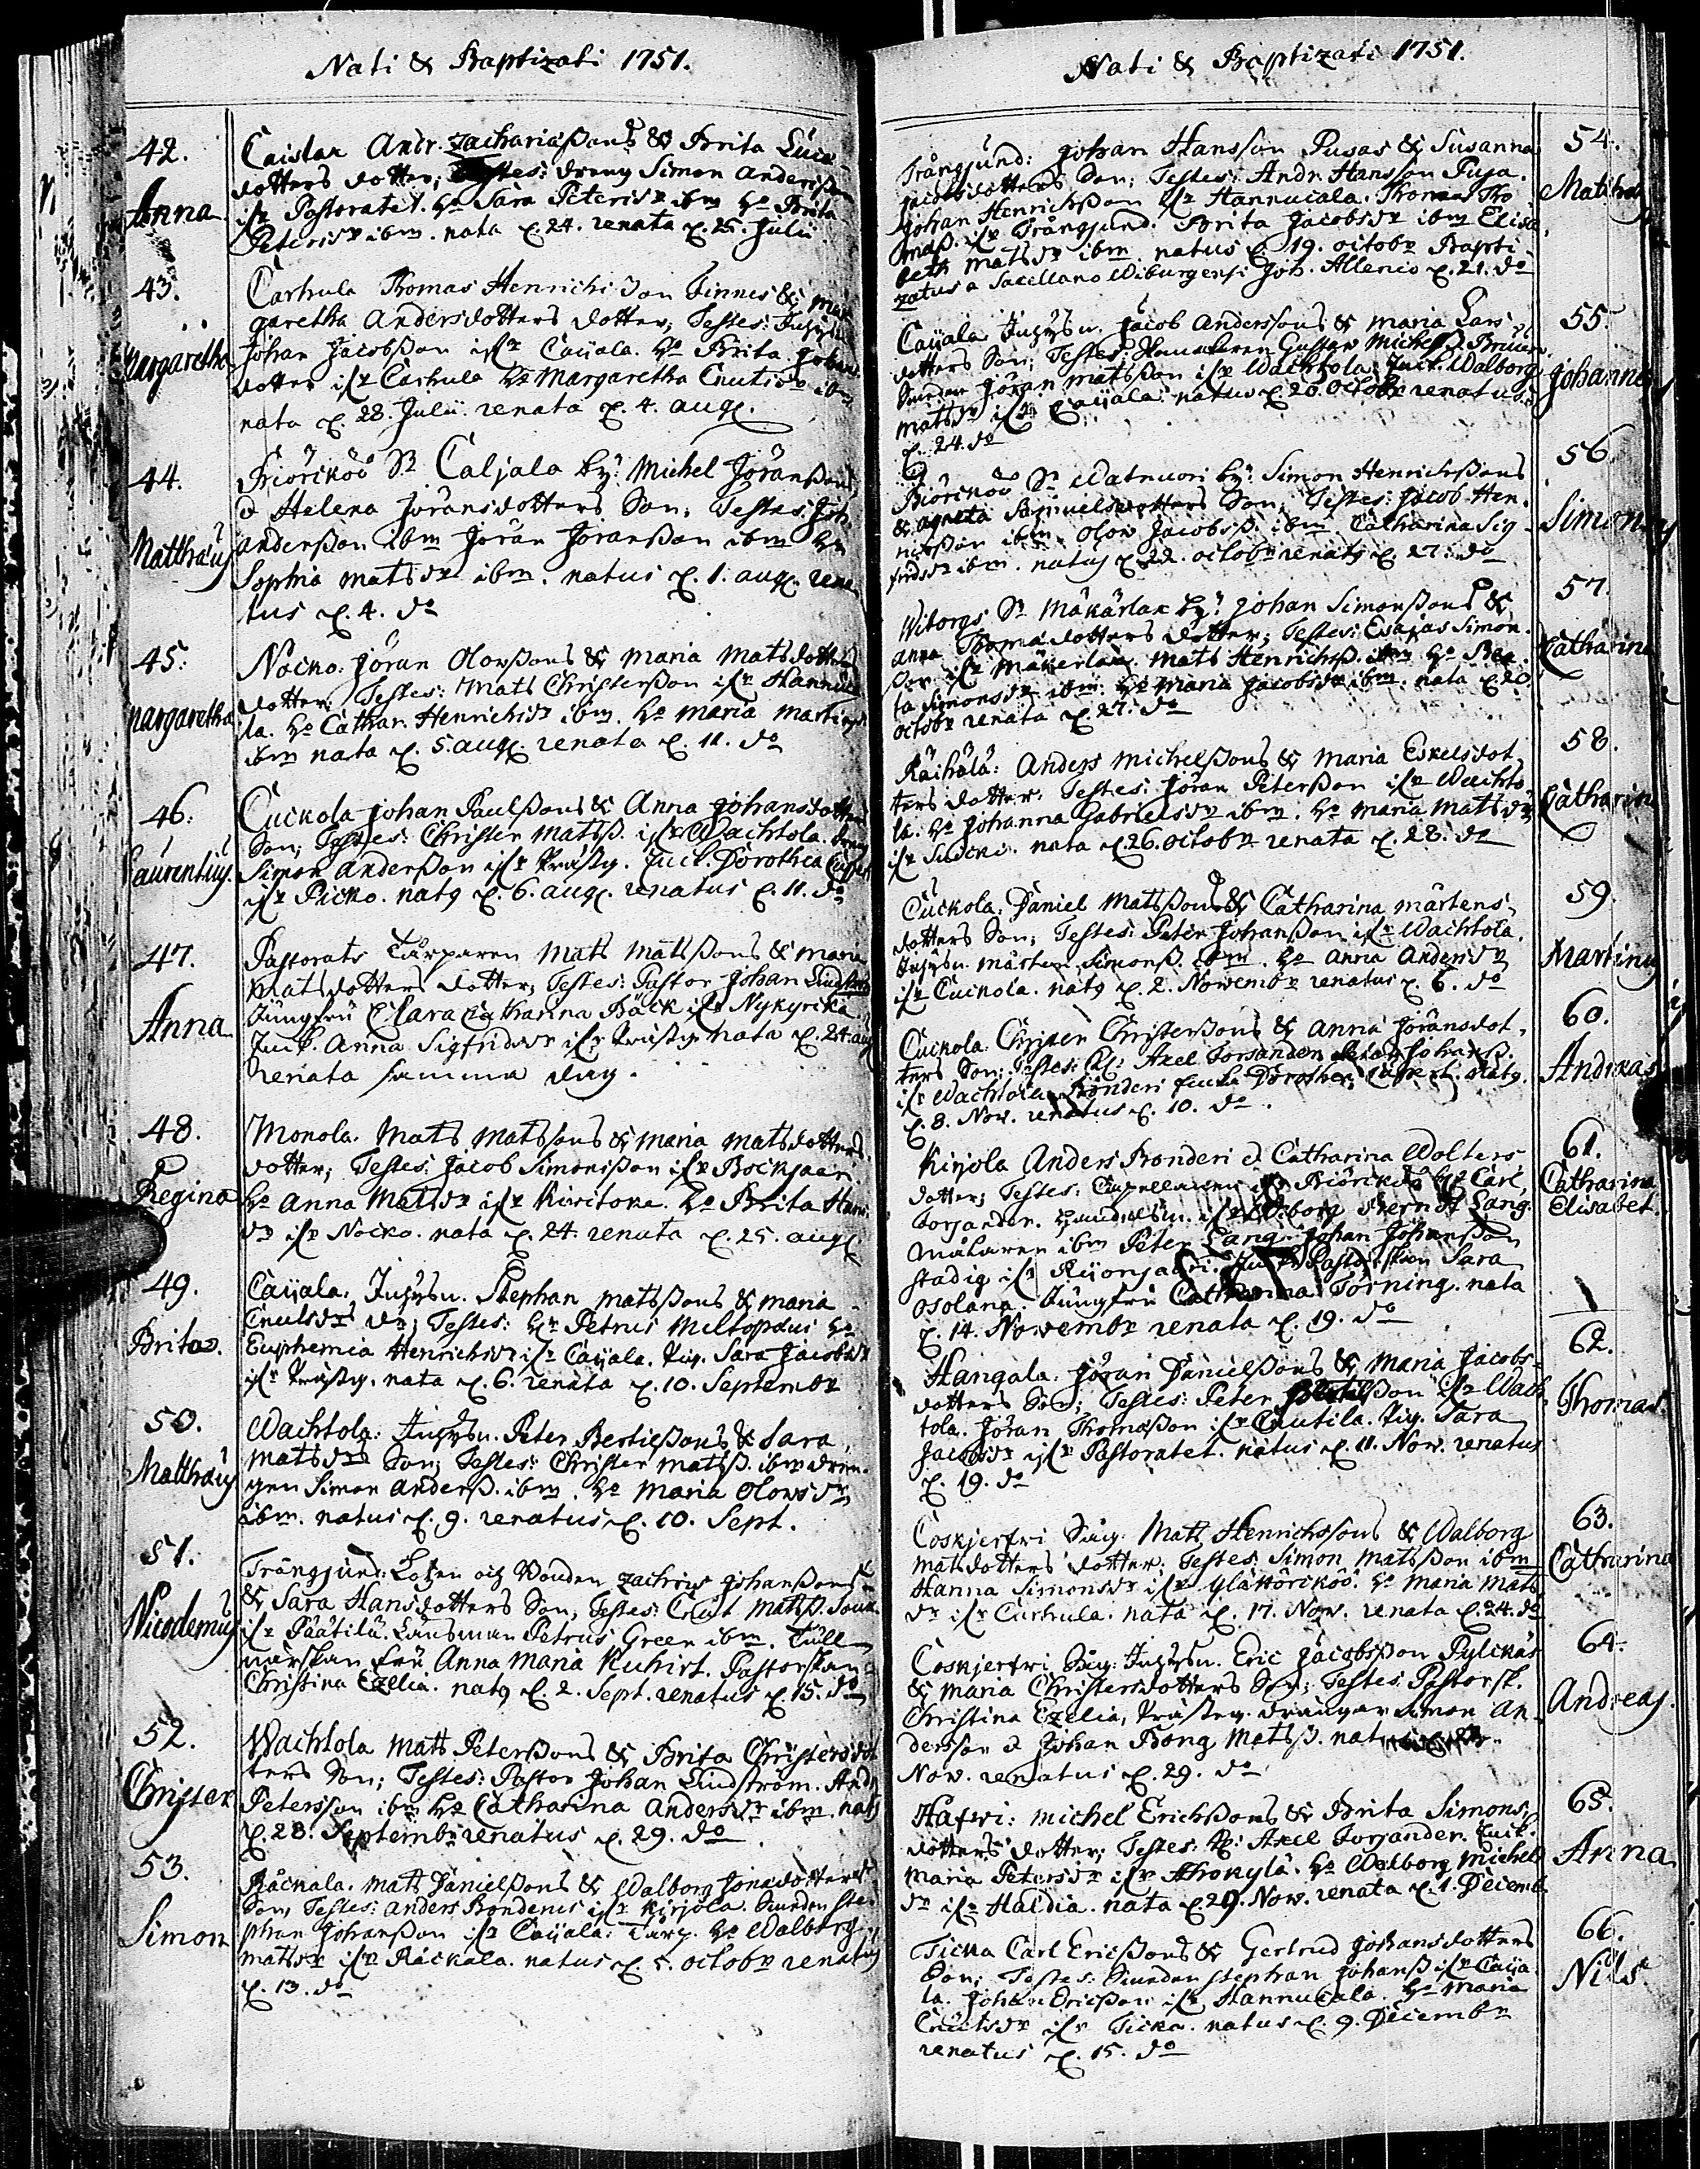 Nati & Baptizati 1751.
42.
Anna
Caislax Andr. Zachariæssons & Brita Luca
dotters dotter; Testes: dreng Simon Andersson
ifr Pastoratet. Ho Sara Petersdr ibm Ho Brita
Petersdr ibm. nata d. 24. renata d. 25. Julii
43.
Margaretha
Carhula Thomas Henrichsson Finnes & Mar
garetha Andersdotters dotter; Testes:
Johan Jacobsson ifr Caijala. Ho Brita Johans
dotter ifr Carhula Ho Margaretha Cnutsdr ibm
nata d. 28. Julii. renata d. 4. aug.
44.
Matthæus
Biörckö Sn Caljala by: Michel Jöranssons
& Helena Jöransdotters Son; Testes: Joh.
andersson ibm Jöran Jöransson ibm Ho
Sophia matsdr ibm. natus d. 1. aug. rena
tus d. 4. do
45.
Margaretha
Nocko. Jöran Olovssons & Maria Matsdotters
dotter; Testes: Mats Christersson ifr Hannuca
la. Ho Cathar. Henrichsdr ibm. Ho Maria Martinsdr
ibm nata d. 5. aug. renata d. 11. do
46.
Laurentius.
Cuckola Johan Paulssons & Anna Johansdotters
Son; Testes: Christer Matss. ifr Wachtola. dreng
Simon Andersson ifr Prästg. Juck. Dorothea
ifr Picko. nat9 d. 6. aug. renatus d. 11. do
47.
Anna
Pastorats Tårparen Mats Matssons & Maria
Matsdotters dotter; Testes: Pastor Johan Lindström
Jungfru Clara Catharina Bäck ifr Nykyrka.
Juck. Anna Sigfridsdr ifr Prästg. nata d. 24. aug
renata samma dag.
48.
Regina
Monola. Mats Matssons & Maria Matsdotters
dotter; Testes: Jacob Simonsson ifr Rockjaeri
Ho Anna Matsdr ifr Kiiritoka. Ho Brita
dr ifr Nocko. nata d. 24. renata d. 25. aug.
49.
Brita.
Caijala. Stephan Matssons & Maria
Cnutsdrs dr; Testes: Hr Petrus Meltopæus Ho
Euphemia Henrichsdr ifr Caijala. Pig. Sara Jacobsdr
ifr Prästg. nata d. 6. renata d. 10. Septembr
50.
Matthæus
Wachtola: Peter Bertilssons & Sara
Matsdrs Son; Testes: Christer Matss. ibm dren
gen Simon Anderss. ibm. Ho Maria Olovsdr
ibm. natus d. 9. renatus d. 10. Sept.
51.
Nicodemus
Trångsund: Lotzen och Bonden Zachris Johanssons
& Sara Hansdotters Son; Testes: Cnut Matss.
ifr Päätilä. Länsman Petrus Green ibm. Tull
närskan fru Anna Maria Kuhirt. Pastorskan
Christina Ezelia. nat9 d. 2. Sept. renatus d. 15. do
52.
Christer
Wachtola Mats Peterssons & Brita Christersdot
ters Son; Testes: Pastor Johan Lindström. Andr
Petersson ibm Ho Catharina Andersdr ibm. nat9
d. 28. Septembr renatus d. 29. do
53.
Simon
Räckala. Mats Danielssons & Walborg Jonædotters
Son; Testes: Anders Bonderus ifr Kirjola. Smeden Ste
phan Johansson ifr Caijala: Tarp. Ho Walborg
Matsdr ifr Räckala. natus d. 5. octobr renatus
d. 13. do
Nati & Baptizati 1751.
54.
Trångsund: Johan Hansson Pusas & Susanna
Jacobsdotters Son; Testes: Andr Hansson Pusa.
Johan Henrichsson ifr Hannucala. Thomas Tho
mass. ifr Trångsund. Brita Jacobsdr ibm Elisa
beth Matsdr ibm. natus d. 19. octobr Bapti
zatus a Sacellano Wiburgensi Joh. Allenio d. 21. do
55.
Johannes
Caijala Jacob Anderssons & Maria Lars
dotters Son; Testes: Gustav Michelss.
Smeden Jöran Matsson ifr Wachtola. Juck. Walborg
Matsdr ifr Caijala. natus d. 20. octobr renatus
d. 24. do
56.
Simon
Biörckö Sn Watnuori by: Simon Henrichssons
& Agneta Samuelsdotters Son; Testes: Jacob Hen
richsson ibm. Olov Jacobss. ibm Catharina Sig
fridsdr ibm. natus d. 22. octobr renat9 d. 27. do
57.
Catharina
Wiborgs Sn Mäkärlax by: Johan Simonssons &
Anna Thomædotters dotter; Testes: Esajas Simon
son ifr Mäkerlax. Mats Henrichss. ibm Ho Bea
ta Simonsdr ibm Ho Maria Jacobsdr ibm. nata d. 20.
octobr renata d. 27. do
58.
Catharina
Räihälä: Anders Michelssons & Maria Eskelsdot
ters dotter. Testes: Jöran Petersson ifr Wachto
la. Ho Johanna Gabrielsdr ibm. Ho Maria Matsdr
ifr Sudenki. nata d. 26. octobr renata d. 28. do
59.
Martinus
Cuckola. Daniel Matssons & Catharina Mårtens
dotters Son; Testes: Peter Johansson ifr Wachtola.
Mårten Simonss. ibm. Ho Anna Andersdr
ifr Cuckola. nat9 d. 2. Novembr renatus d. 6. do
60.
Andreas
Cuckola. Christer Christerssons & Anna Jöransdot
ters Son; Testes: Axel Forsander Johanss.
ifr Wachtola. Bonderi Dorothea nat9.
d. 8. Nov. renatus d. 10. do.
61.
Catharina
Elisabet.
Kirjola Anders Bonderi & Catharina Wolters
dotter; Testes: Capellanen ifr Biörckö Hr Carl
Forsander. Handelsm. ifr Wiborg Berndt Lang.
Målaren ibm Peter Lang. Johan Johansson
Stadig ifr Kijonjaeri. Pastorskan Sara
Osolana. Jungfru Catharina Törning. nata
d. 14. Novembr renata d. 19. do
62.
Thomas
Hangala. Jöran Danielssons & Maria Jacobs
dotters Son; Testes: Peter ifr Wach
tola. Jöran Thomasson ifr Cnutila. Pig. Sara
Jacobsdr ifr Pastoratet. natus d. 11. Nov. renatus
d. 19. do
63.
Catharina
Coskjerfwi Såg. Matts Henrichssons & Walborg
Matsdotters dotter; Testes: Simon Matsson ibm
Hanna Simonsdr ifr Ho Maria Mats
dr ifr Curhula. nata d. 17. Nov. renata d. 24. do
64.
Andreas.
Coskjerfwi Såg. Eric Jacobsson Pylckäs
& Maria Christersdotters Son; Testes. Pastorsk.
Christina Ezelia, Prästeg. drängar Simon An
dersson & Johan Bong Matss.
Nov. renatus d. 29. do
65.
Anna
Hafwi: Michel Erichssons & Brita Simons
dotters dotter; Testes: Axel Forsander. Juck.
Maria Petersdr ifr Honkylä. Ho Walborg Michels
dr ifr Haldia. nata d. 29. Nov. renata d. 1. Decemb
66.
Nils
Ticka Carl Ericssons & Gertrud Johansdotters
Son; Testes: Smeden Stephan Johanss ifr Caija
la. Johan Ericsson ifr Hannucala. Ho Maria
Cnutsdr ifr Ticka. natus d. 9. Decembr
renatus d. 15. do